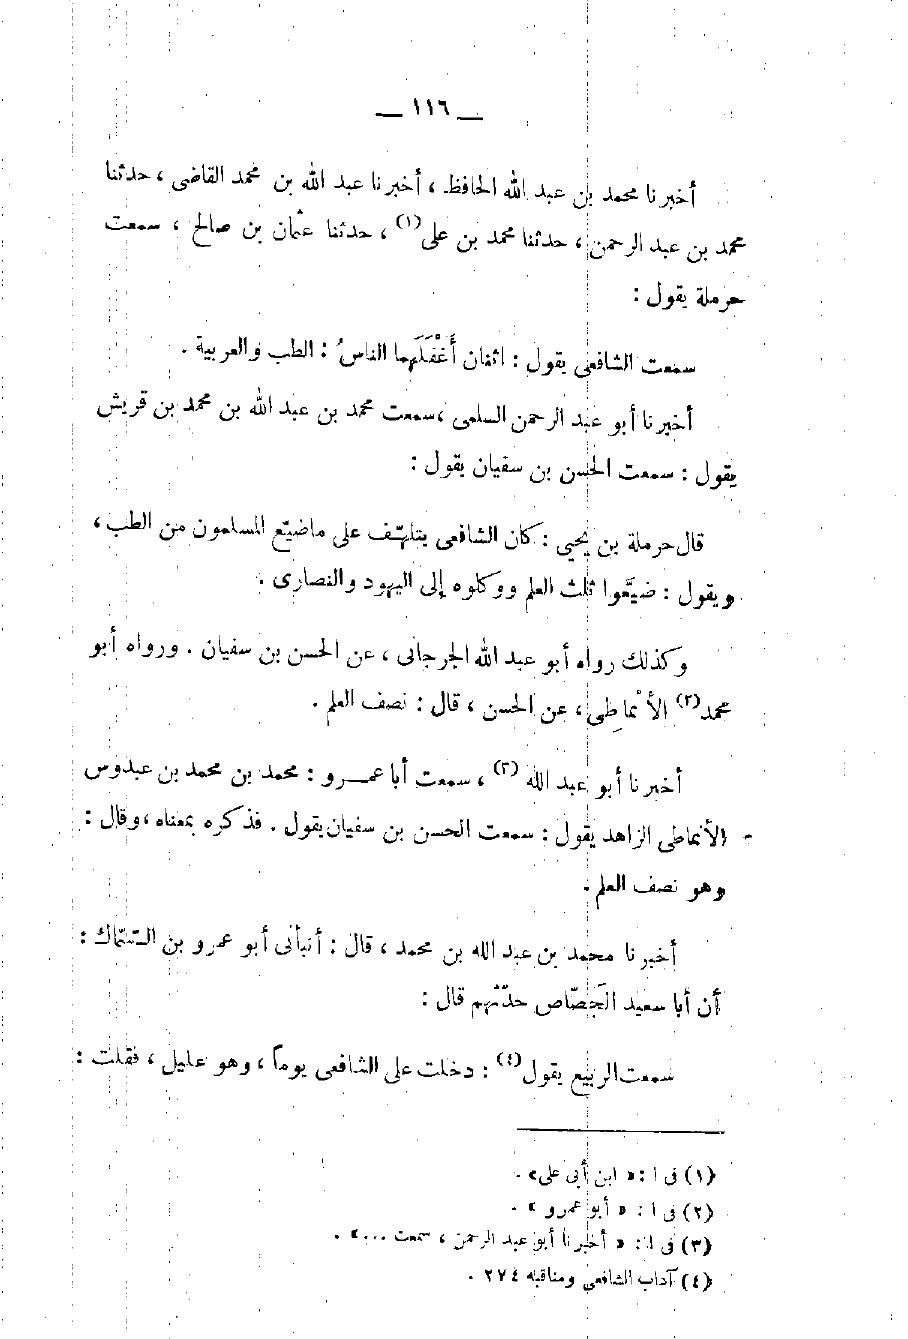 — ١١٦ —
أخبرنا محمد بن عبد الله الحافظ ، أخبرنا عبد الله بن محمد القاضى ، حدثنا
محمد بن عبد الرحمن ، حدثنا محمد بن على(١) ، حدثنا عثمان بن صالح ، سمعت
حرملة يقول :
سمعت الشافعى يقول : اثنان أَغْفَلَهما الناسُ : الطب والعربية .
أخبرنا أبو عبد الرحمن السلمى ، سمعت محمد بن عبد الله بن محمد بن قريش
يقول : سمعت الحسن بن سفيان يقول :
قال حرملة بن يحيى : كان الشافعى يتلهّف على ماضيّع المسلمون من الطب ،
ويقول : ضيّعوا ثلث العلم ووكلوه إلى اليهود والنصارى .
وكذلك رواه أبو عبد الله الجرجانى ، عن الحسن بن سفيان . ورواه أبو
محمد(٢) الأنماطى ، عن الحسن ، قال : نصف العلم .
أخبرنا أبو عبد الله(٣) ، سمعت أبا عمرو : محمد بن محمد بن عبدوس
الأنماطى الزاهد يقول : سمعت الحسن بن سفيان يقول . فذكره بمعناه ، وقال :
وهو نصف العلم .
أخبرنا محمد بن عبد الله بن محمد ، قال : أنبأنى أبو عمرو بن السَّمّاك :
أن أبا سعيد الجَصّاص حدّثهم قال :
سمعت الربيع يقول(٤) : دخلت على الشافعى يوماً ، وهو عليل ، فقلت :
(١) فى ا : « ابن أبى على» .
(٢) فى ا : « أبو عمرو » .
(٣) فى ا : « أخبرنا أبو عبد الرحمن ، سمعت ...» .
(٤) آداب الشافعى ومناقبه ٢٧٤ .